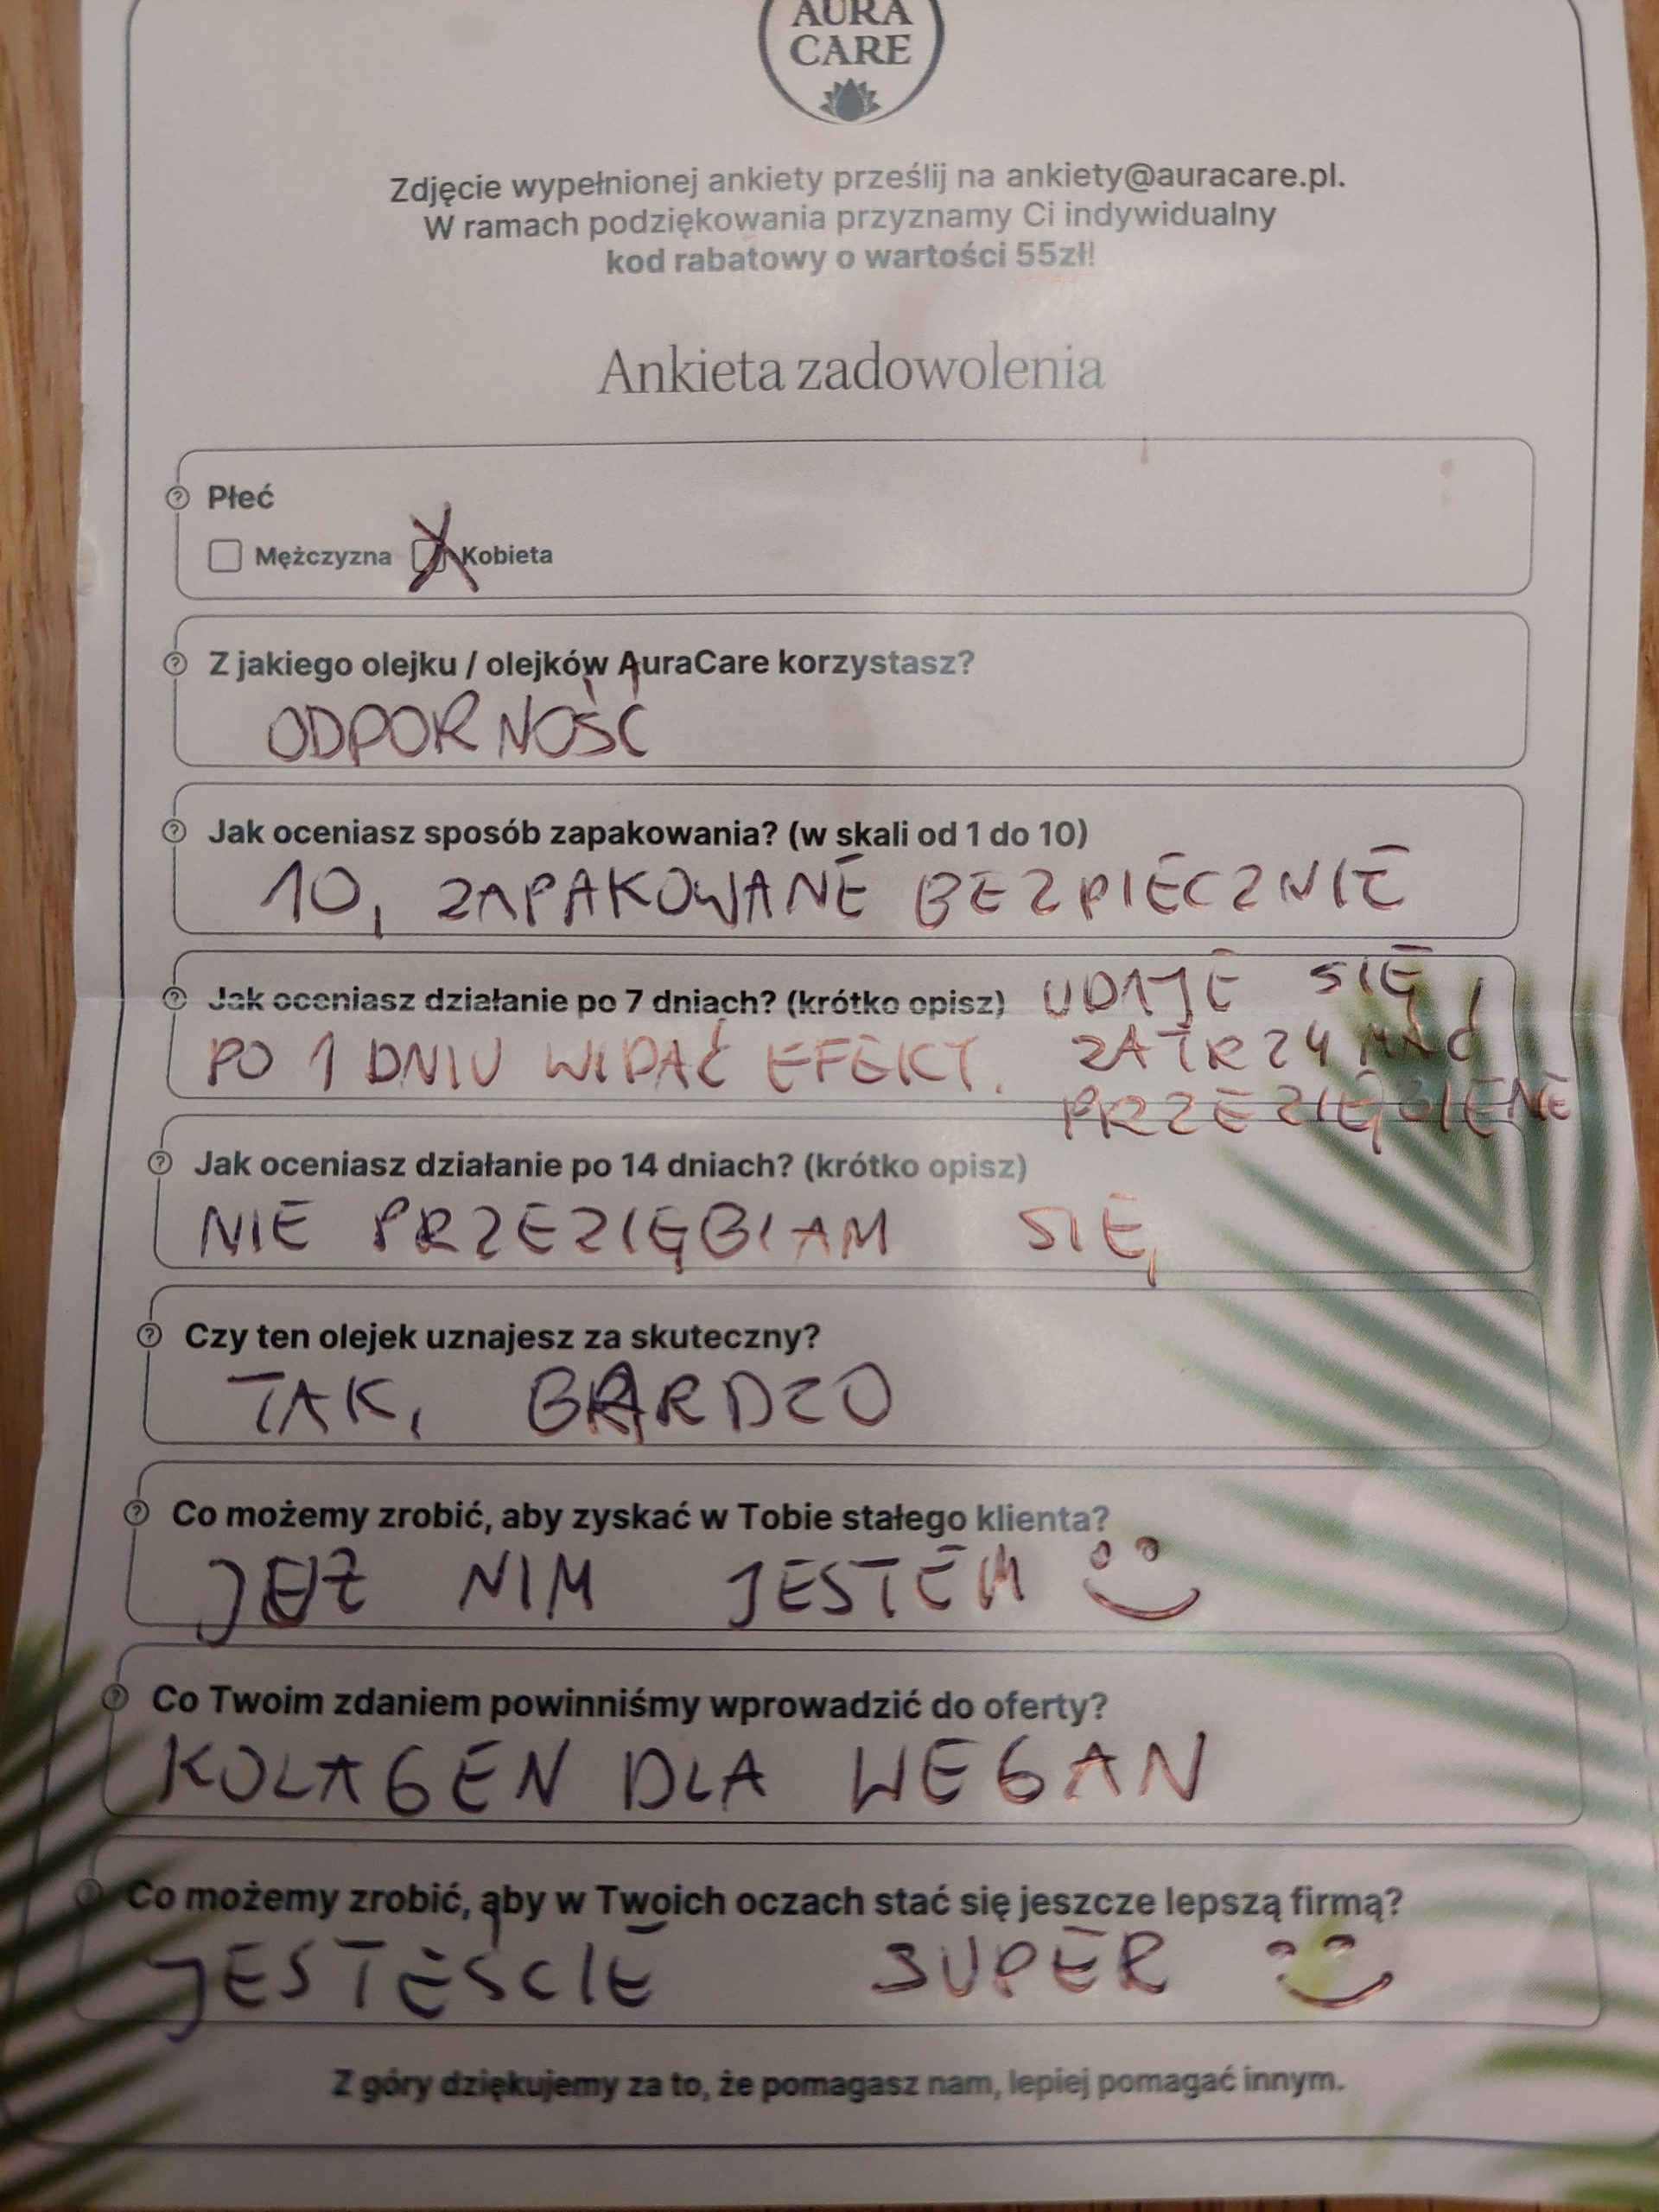 AURA
CARE
Zdjęcie wypełnionej ankiety prześlij na ankiety@auracare.pl.
W ramach podziękowania przyznamy Ci indywidualny
kod rabatowy o wartości 55zł!
Ankieta zadowolenia
Płeć
Mężczyzna X Kobieta
Z jakiego olejku / olejków AuraCare korzystasz?
ODPORNOŚĆ
Jak oceniasz sposób zapakowania? (w skali od 1 do 10)
10, ZAPAKOWANE BEZPIECZNIE
Jak oceniasz działanie po 7 dniach? (krótko opisz)
PO 1 DNIU WIDAĆ EFEKT.
UDAJE SIĘ
ZATRZYMAĆ
PRZEZIĘBIENE
Jak oceniasz działanie po 14 dniach? (krótko opisz)
NIE PRZEZIĘBIAM SIĘ
Czy ten olejek uznajesz za skuteczny?
TAK, BARDZO
Co możemy zrobić, aby zyskać w Tobie stałego klienta?
JUŻ NIM JESTEM
Co Twoim zdaniem powinniśmy wprowadzić do oferty?
KOLAGEN DLA WEGAN
Co możemy zrobić, aby w Twoich oczach stać się jeszcze lepszą firmą?
JESTEŚCIE SUPER
Z góry dziękujemy za to, że pomagasz nam, lepiej pomagać innym.